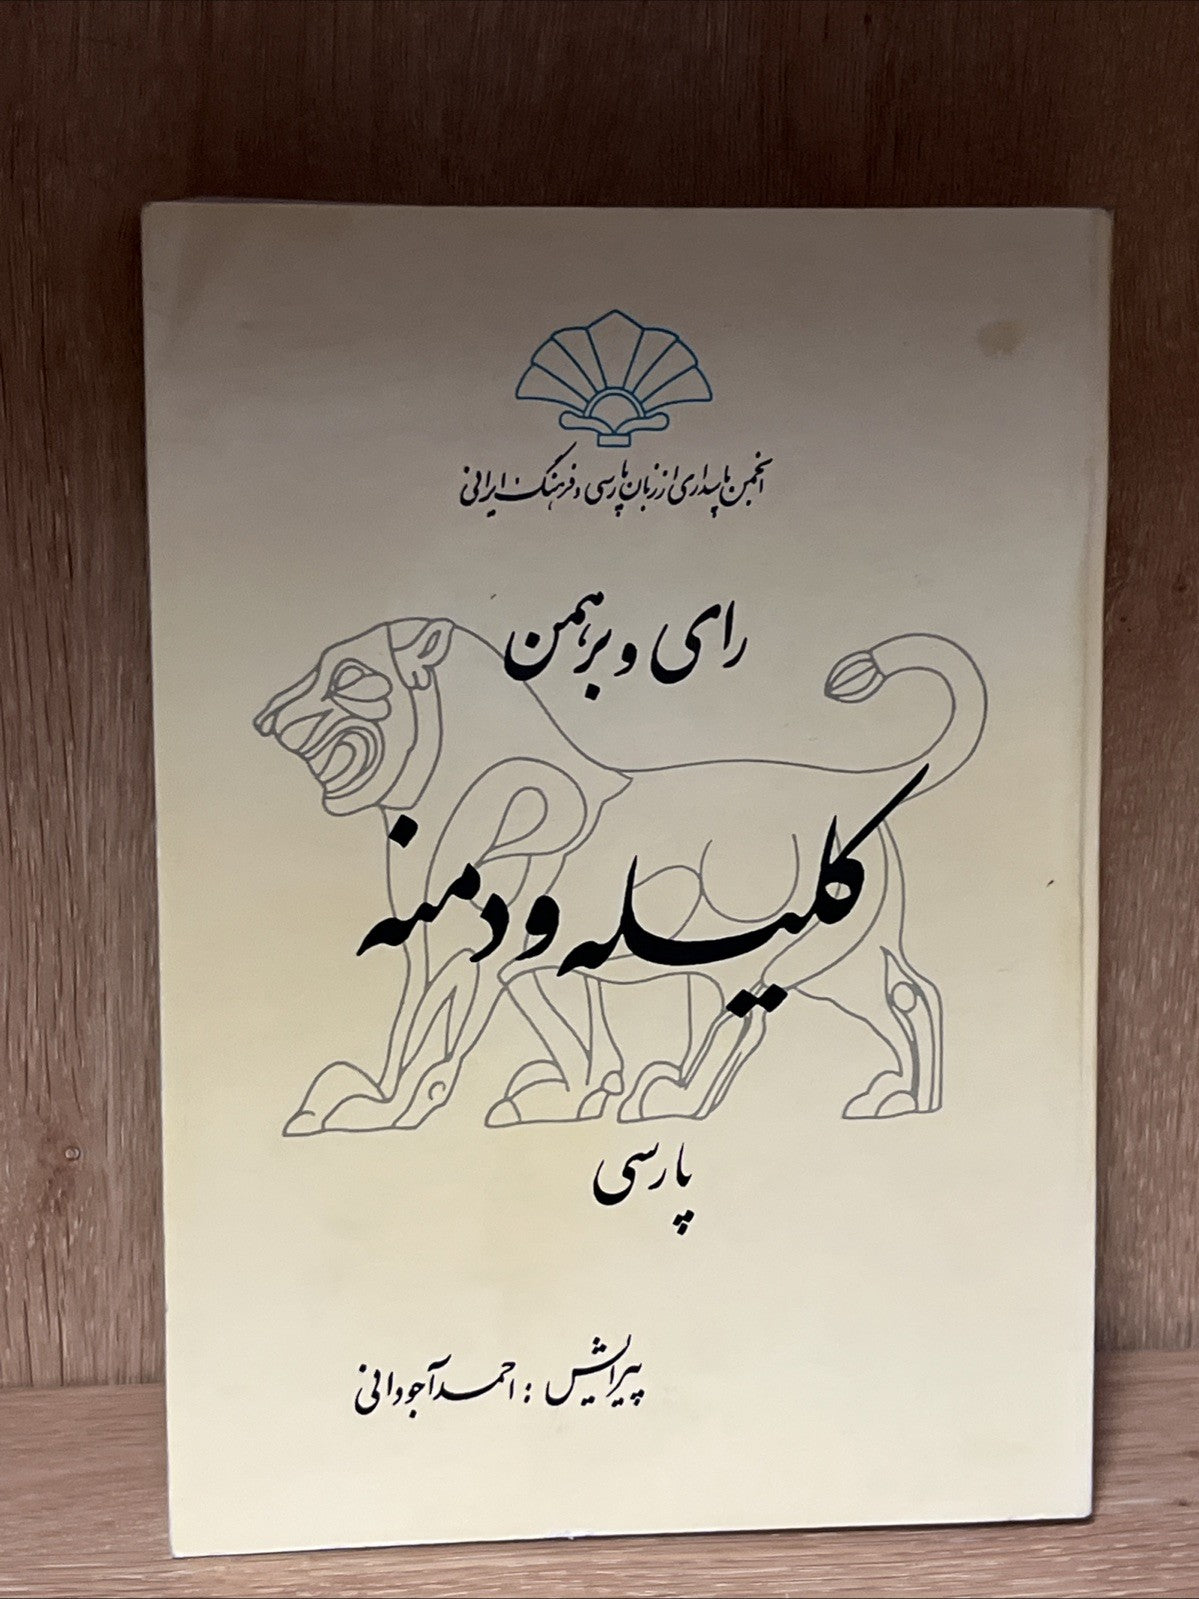 انجمن پاسداری از زبان پارسی و فرهنگ ایرانی
رای و برهمن
کلیله و دمنه
پارسی
پیرایش : احمد آجودانی